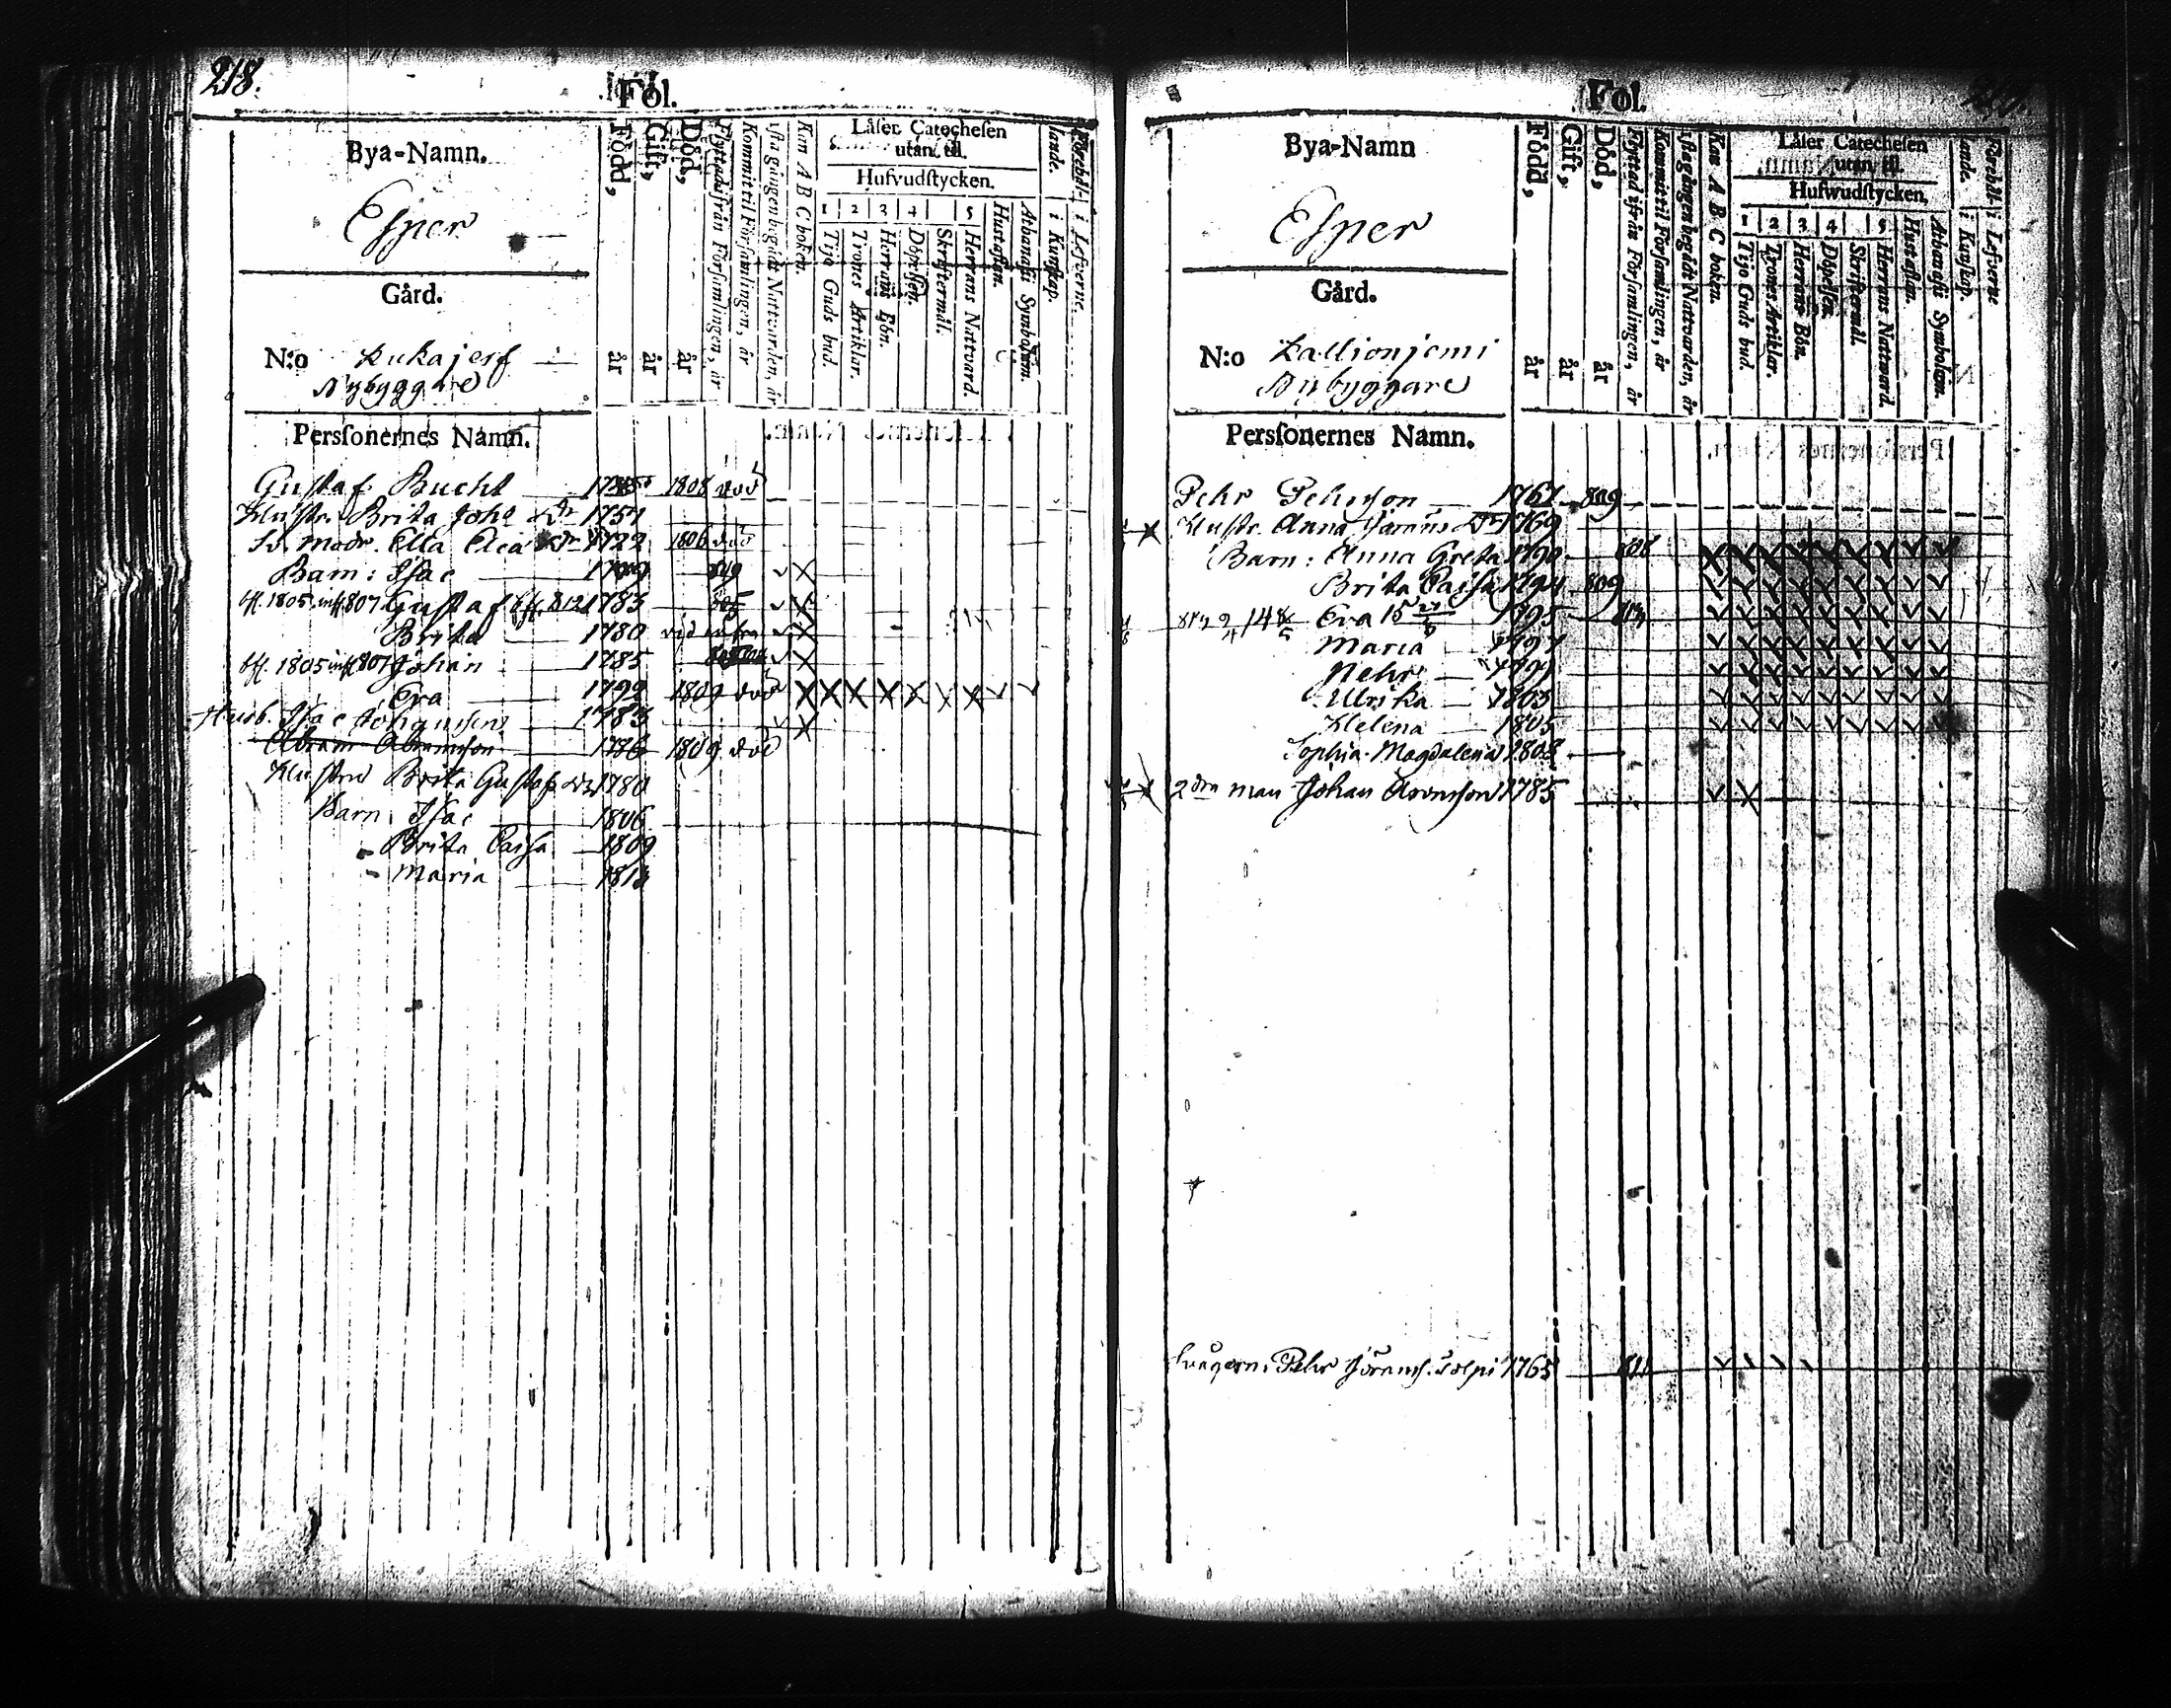 218.
Föl.
Bya-Namn.
Esper
Gård.
N:o Kukajerf
Nybyggare
Född, år
Gift, år
Död, år
Flyttad ifrån Församlingen, år
Kommit til Församlingen, år
1sta gången begådt Nattvarden, år
Kan A B C boken.
Läser Catechesen
utan til.
Hufvudstycken.
1 2 3 4 5
Tijo Guds bud.
Trones Artiklar.
Herrans Bön.
Döpelsen.
Skriftermål.
Herrans Nattvard.
Hustaflan.
Athanasii Symbolum.
i Kunskap.
i Lefverne.
Personernes Namn.
Gustaf Bucht 1808 död
Hustr. Brita Joh: Dr 1751
Sv. Modr. Ella Dr 1722 1806 död
Barn: Isac
1805 807 Gustaf 812 1783
Brita 1780
1805 807 Johan 1785
Eva 1792 1809 död
Husb. Isac Johansson 1783
Abram Abramson 1786 1809 död
Hustru Brita Gustafs Dr 1780
Barn Isac 1806
Brita Caisa 1809
Maria 1813
Fol.
Bya-Namn
Esper
Gård.
N:o Kallioniemi
Nybyggare
Född, år
Gift, år
Död, år
Flyttad ifrån Församlingen, år
Kommit til Församlingen, år
1sta gången begådt Nattvarden, år
Kan A B C boken.
Läser Catechesen
utan til.
Hufwudstycken,
1 2 3 4 5
Tijo Guds bud.
Trones Artiklar.
Herrans Bön.
Döpelsen.
Skriftermål.
Herrans Nattward.
Hustaflan.
Athanasii Symbolum.
i Kunskap.
i Lefverne
Personernes Namn.
Pehr Pehrson 1767 809
Hustr. Anna Jörans Dr 1769
Barn: Anna Greta 1790
Brita Caisa 1794 809
Eva 1795
Maria 1797
Pehr 1799
Ulrika 1803
Helena 1805
Sophia Magdalena 1808
2dra man Johan Aronsson 1785
Svågern: Pehr Jörans. 1765